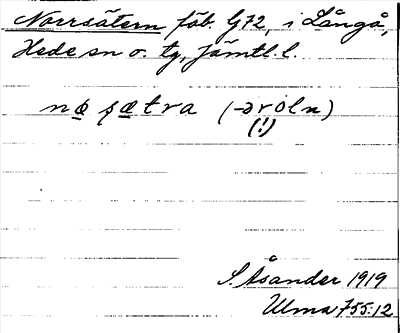 Norrsätern fäb. G72, i Långå,
Hede sn o. tg, Jämtl. l.
nø̲ sæ̲tra (-əroln)
(!)
S. Åsander 1919
Ulma 755:12